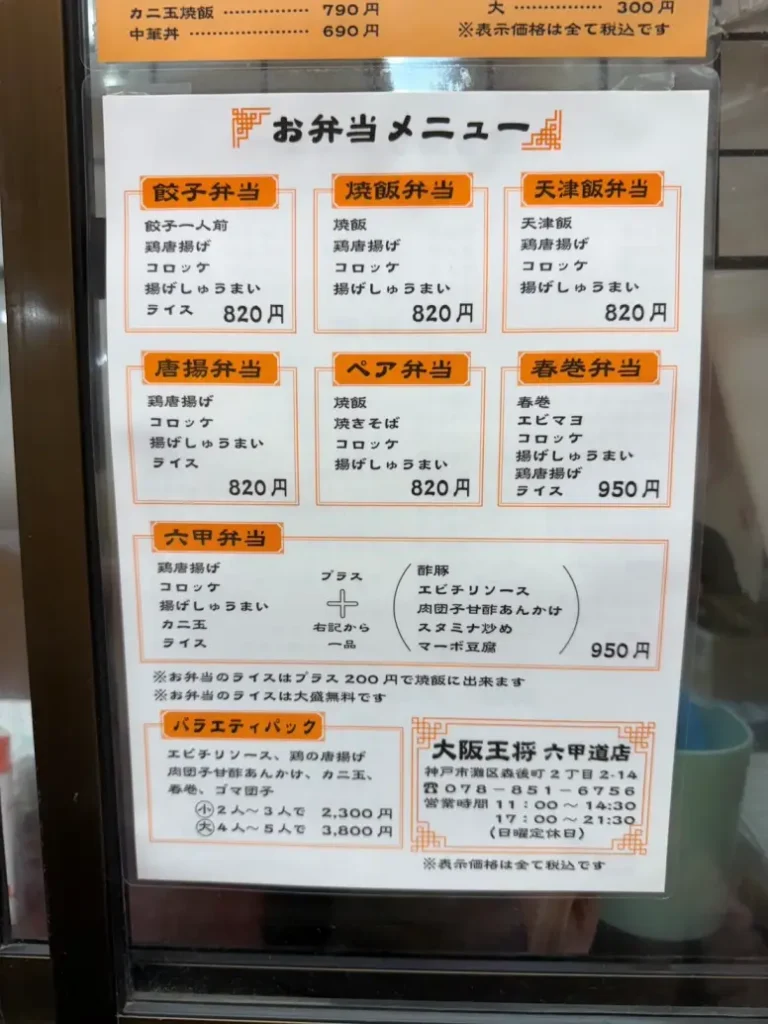 カニ玉焼飯 ………………… 790円
中華丼 ………………… 690円
大 ………………… 300円
※表示価格は全て税込です
お弁当メニュー
餃子弁当
餃子一人前
鶏唐揚げ
コロッケ
揚げしゅうまい
ライス 820円
焼飯弁当
焼飯
鶏唐揚げ
コロッケ
揚げしゅうまい
820円
天津飯弁当
天津飯
鶏唐揚げ
コロッケ
揚げしゅうまい
820円
唐揚弁当
鶏唐揚げ
コロッケ
揚げしゅうまい
ライス
820円
ペア弁当
焼飯
焼きそば
コロッケ
揚げしゅうまい
820円
春巻弁当
春巻
エビマヨ
コロッケ
揚げしゅうまい
鶏唐揚げ
ライス 950円
六甲弁当
鶏唐揚げ
コロッケ
揚げしゅうまい
カニ玉
ライス
プラス
+
右記から
一品
酢豚
エビチリソース
肉団子甘酢あんかけ
スタミナ炒め
マーボ豆腐
950円
※お弁当のライスはプラス200円で焼飯に出来ます
※お弁当のライスは大盛無料です
バラエティパック
エビチリソース、鶏の唐揚げ
肉団子甘酢あんかけ、カニ玉、
春巻、ゴマ団子
小2人～3人で 2,300円
大4人～5人で 3,800円
大阪王将 六甲道店
神戸市灘区森後町2丁目2-14
☎078-851-6756
営業時間 11:00～14:30
17:00～21:30
(日曜定休日)
※表示価格は全て税込です